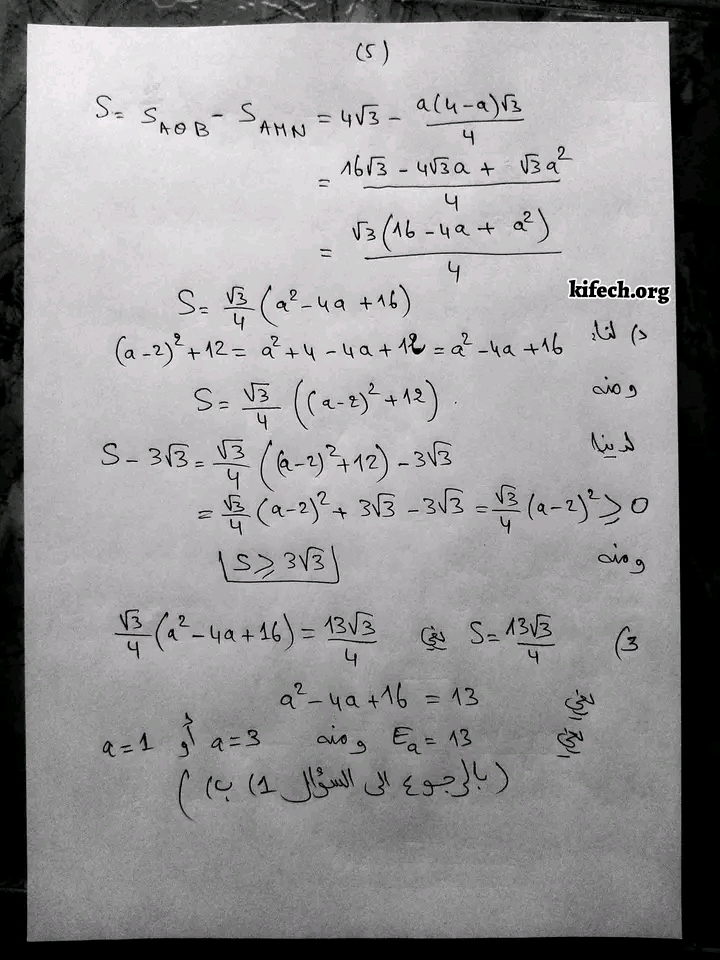 (5)
S = S_AOB - S_AMN = 4√3 - a(4-a)√3/4
= (16√3 - 4√3a + √3a²)/4
= √3(16 - 4a + a²)/4
kifech.org
S = √3/4 (a² - 4a + 16)
د) لنا: (a-2)² + 12 = a² + 4 - 4a + 12 = a² - 4a + 16
ومنه S = √3/4 ((a-2)² + 12).
لدينا S - 3√3 = √3/4 ((a-2)² + 12) - 3√3
= √3/4 (a-2)² + 3√3 - 3√3 = √3/4 (a-2)² ⩾ 0
ومنه S ⩾ 3√3
3) S = 13√3/4 يعني √3/4 (a² - 4a + 16) = 13√3/4
يعني a² - 4a + 16 = 13
يعني E_a = 13 ومنه a = 3 أو a = 1
(بالرجوع الى السؤال 1) ب))